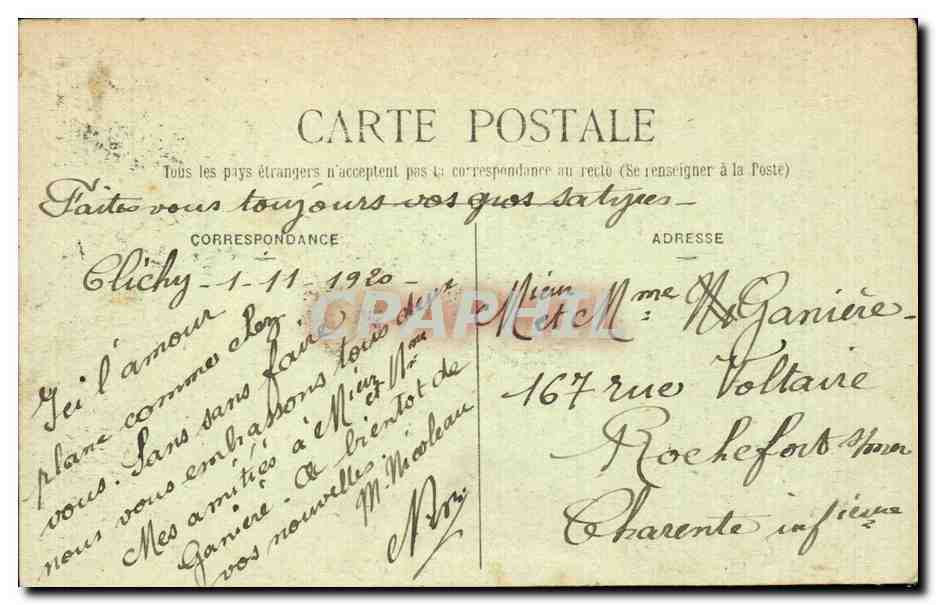 CARTE POSTALE
Tous les pays étrangers n'acceptent pas la correspondance au recto (Se renseigner à la Poste)
Faites vous toujours vos gros satyres -
CORRESPONDANCE
Clichy - 1 - 11 - 1920 -
Ici l'amour
plane comme chez
vous. Sans sans faire
nous vous embrassons tous deux
Mes amitiés à Mieur et Mme
Ganière - à bientôt de
vos nouvelles.
M. Nicoleau
ADRESSE
Mieur et Mme Ganière -
167 rue Voltaire
Rochefort s/mer
Charente infieure
CPAPHIL